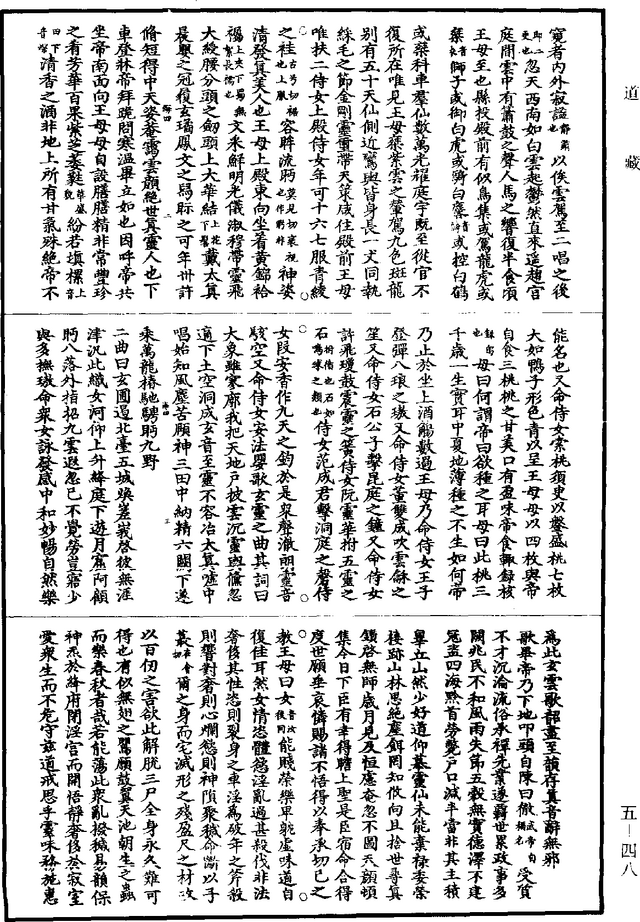 道藏
寬者内外寂謐靜肅也以俟雲駕至二唱之後
即二更也忽天西南如白雲起鬱然直來逕趨宫
庭間雲中有簫鼓之聲人馬之響復半食頃
王母至也縣投殿前有似鳥集或駕龍虎或
乘獅子或御白虎或騎白麐或控白鶴
或乘科車羣仙數萬光耀庭宇既至從官不
復所在唯見王母乘紫雲之輦駕九色斑龍
别有五十天仙側近鸞輿皆身長一丈同執
綵毛之節金剛靈璽帶天策咸住殿前王母
唯扶二侍女上殿侍女年可十六七服青綾
之袿容眸流眄神姿
清發真美人也王母上殿東向坐著黄錦袷
襹文采鮮明光儀淑穆帶靈飛
大綬腰分頭之劒頭上大華結戴太真
晨嬰之冠履玄璚鳳文之舄眎之可年卅許
脩短得中天姿菴靄雲顔絶世真靈人也下
車登牀帝拜跪問寒温畢立如也因呼帝共
坐帝南面向王母母自設膳膳精非常豐珍
之肴芳華百果紫芝萎蕤紛若填樏
清香之酒非地上所有甘氣殊絶帝不
能名也又命侍女索桃須臾以鎜盛桃七枚
大如鴨子形色青以呈王母母以四枚與帝
自食三桃桃之甘美口有盈味帝食輒録核
母曰何謂帝曰欲種之耳母曰此桃三
千歳一生實耳中夏地薄種之不生如何帝
乃止於坐上酒觴數過王母乃命侍女王子
登彈八琅之璈又命侍女董雙成吹雲龢之
笙又命侍女石公子擊昆庭之鐘又命侍女
許飛瓊鼓震靈之簧侍女阮靈華拊五靈之
石侍女范成君擊洞庭之磬侍
女段安香作九天之鈞於是衆聲澈朗靈音
駭空又命侍女安法嬰歌玄靈之曲其詞曰
大象雖寥廓我把天地户披雲沉靈輿儵忽
適下土空洞成玄音至靈不容冶太真噓中
唱始知風塵苦頤神三田中納精六闕下遂
乘萬龍椿馳騁眄九野
二曲曰玄圃遏北臺五城焕嵳峩啓彼無涯
津汎此織女河仰上升絳庭下遊月窟阿顧
眄八落外指招九雲遐忽已不覺勞豈寤少
與多撫璈命衆女詠發感中和妙暢自然樂
爲此玄雲歌韶盡至韻存真音辭無邪
歌畢帝乃下地叩頭自陳曰徹受質
不才沉淪流俗承禪先業遂羇世累政事多
闕兆民不和風雨失節五穀無實德澤不建
寇盗四海黔首勞斃户口減半當非其主積
辠丘山然少好道仰慕靈仙未能棄禄委榮
棲跡山林思絶塵餌罔知攸向且捨世尋真
鑽啓無師歳月見及恒慮奄忽不圖天顔頓
集今日下臣有幸得瞻上聖是臣宿命合得
度世願垂哀憐賜諸不悟得以奉承切已之
教王母曰女能賤榮樂卑躭虚味道自
復佳耳然女情恣體慾淫亂過甚殺伐非法
奢侈其性恣則裂身之車淫爲破年之斧殺
則響對奢則心爛慾則神隕聚穢命斷以子
蕞爾之身而宅滅形之殘盈尺之材攻
以百仞之害欲此解脱三尸全身永久難可
得也有似無翅之鷃願鼓翼天池朝生之蟲
而樂春秋者哉若能蕩此衆亂撥穢易韻保
神炁於絳府閉淫宫而開悟静奢侈於寂室
愛衆生而不危守兹道戒思乎靈味務施惠
五—四八